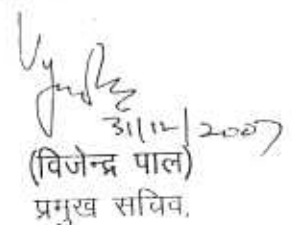 31/12/2007
(विजेन्द्र पाल)
प्रमुख सचिव.